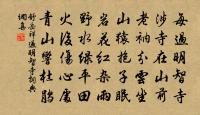 每過明智寺
在山前
老衲分雲坐
山猿抱子眠
岩花紅
野水綠平田
火後傷心處
青山響杜鵑
舒岳祥過明智寺詞典
網